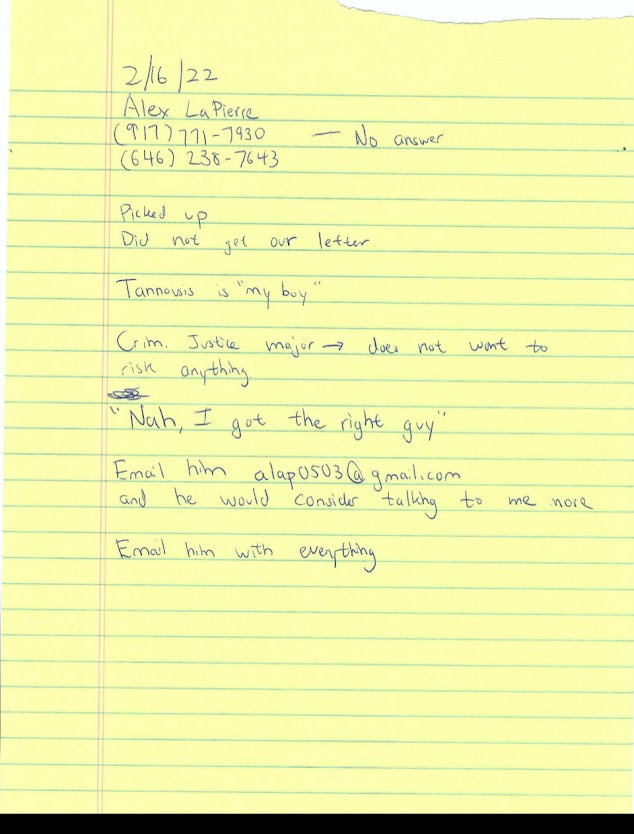 2/16/22
Alex LaPierre
(917) 771-7930 — No answer
(646) 238-7643
Picked up
Did not get our letter
Tannousis is "my boy"
Crim. Justice major → does not want to
risk anything
"Nah, I got the right guy"
Email him alap0503@gmail.com
and he would consider talking to me more
Email him with everything